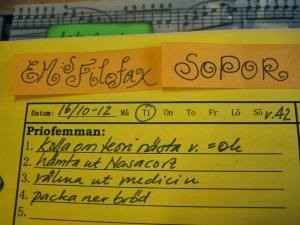 EM:s Filofax
SOPOR
Datum: 16/10-12 Må Ti On To Fr Lö Sö v.42
Priofemman:
1. Kolla om teori nästa v. = ok
2. hämta ut Nasacort
3. räkna ut medicin
4. packa ner bröd
5.